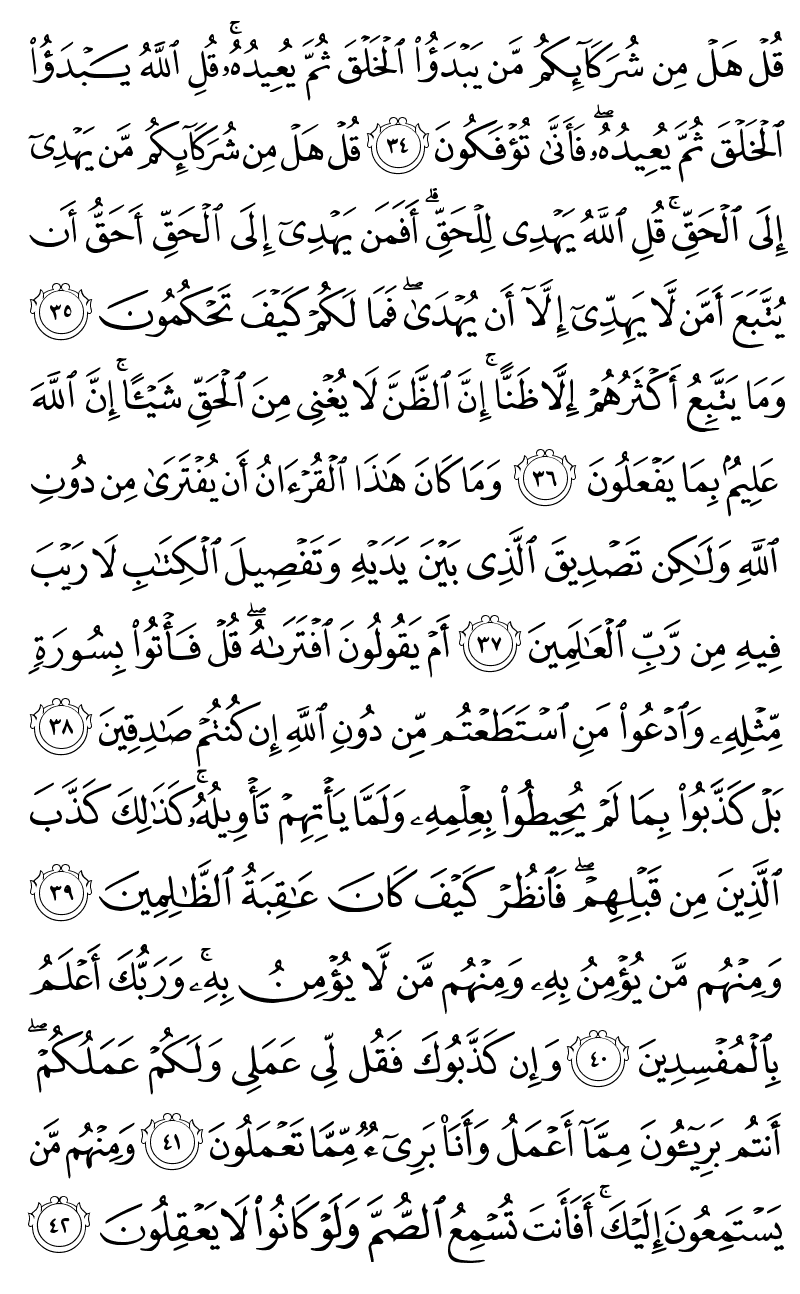 قُلْ هَلْ مِن شُرَكَآئِكُم مَّن يَبْدَؤُا۟ ٱلْخَلْقَ ثُمَّ يُعِيدُهُۥ ۚ قُلِ ٱللَّهُ يَبْدَؤُا۟
ٱلْخَلْقَ ثُمَّ يُعِيدُهُۥ ۖ فَأَنَّىٰ تُؤْفَكُونَ ٣٤ قُلْ هَلْ مِن شُرَكَآئِكُم مَّن يَهْدِىٓ
إِلَى ٱلْحَقِّ ۚ قُلِ ٱللَّهُ يَهْدِى لِلْحَقِّ ۗ أَفَمَن يَهْدِىٓ إِلَى ٱلْحَقِّ أَحَقُّ أَن
يُتَّبَعَ أَمَّن لَّا يَهِدِّىٓ إِلَّآ أَن يُهْدَىٰ ۖ فَمَا لَكُمْ كَيْفَ تَحْكُمُونَ ٣٥
وَمَا يَتَّبِعُ أَكْثَرُهُمْ إِلَّا ظَنًّا ۚ إِنَّ ٱلظَّنَّ لَا يُغْنِى مِنَ ٱلْحَقِّ شَيْـًٔا ۚ إِنَّ ٱللَّهَ
عَلِيمٌۢ بِمَا يَفْعَلُونَ ٣٦ وَمَا كَانَ هَـٰذَا ٱلْقُرْءَانُ أَن يُفْتَرَىٰ مِن دُونِ
ٱللَّهِ وَلَـٰكِن تَصْدِيقَ ٱلَّذِى بَيْنَ يَدَيْهِ وَتَفْصِيلَ ٱلْكِتَـٰبِ لَا رَيْبَ
فِيهِ مِن رَّبِّ ٱلْعَـٰلَمِينَ ٣٧ أَمْ يَقُولُونَ ٱفْتَرَىٰهُ ۖ قُلْ فَأْتُوا۟ بِسُورَةٍ
مِّثْلِهِۦ وَٱدْعُوا۟ مَنِ ٱسْتَطَعْتُم مِّن دُونِ ٱللَّهِ إِن كُنتُمْ صَـٰدِقِينَ ٣٨
بَلْ كَذَّبُوا۟ بِمَا لَمْ يُحِيطُوا۟ بِعِلْمِهِۦ وَلَمَّا يَأْتِهِمْ تَأْوِيلُهُۥ ۚ كَذَٰلِكَ كَذَّبَ
ٱلَّذِينَ مِن قَبْلِهِمْ ۖ فَٱنظُرْ كَيْفَ كَانَ عَـٰقِبَةُ ٱلظَّـٰلِمِينَ ٣٩
وَمِنْهُم مَّن يُؤْمِنُ بِهِۦ وَمِنْهُم مَّن لَّا يُؤْمِنُ بِهِۦ ۚ وَرَبُّكَ أَعْلَمُ
بِٱلْمُفْسِدِينَ ٤٠ وَإِن كَذَّبُوكَ فَقُل لِّى عَمَلِى وَلَكُمْ عَمَلُكُمْ ۖ
أَنتُم بَرِيٓـُٔونَ مِمَّآ أَعْمَلُ وَأَنَا۠ بَرِىٓءٌ مِّمَّا تَعْمَلُونَ ٤١ وَمِنْهُم مَّن
يَسْتَمِعُونَ إِلَيْكَ ۚ أَفَأَنتَ تُسْمِعُ ٱلصُّمَّ وَلَوْ كَانُوا۟ لَا يَعْقِلُونَ ٤٢